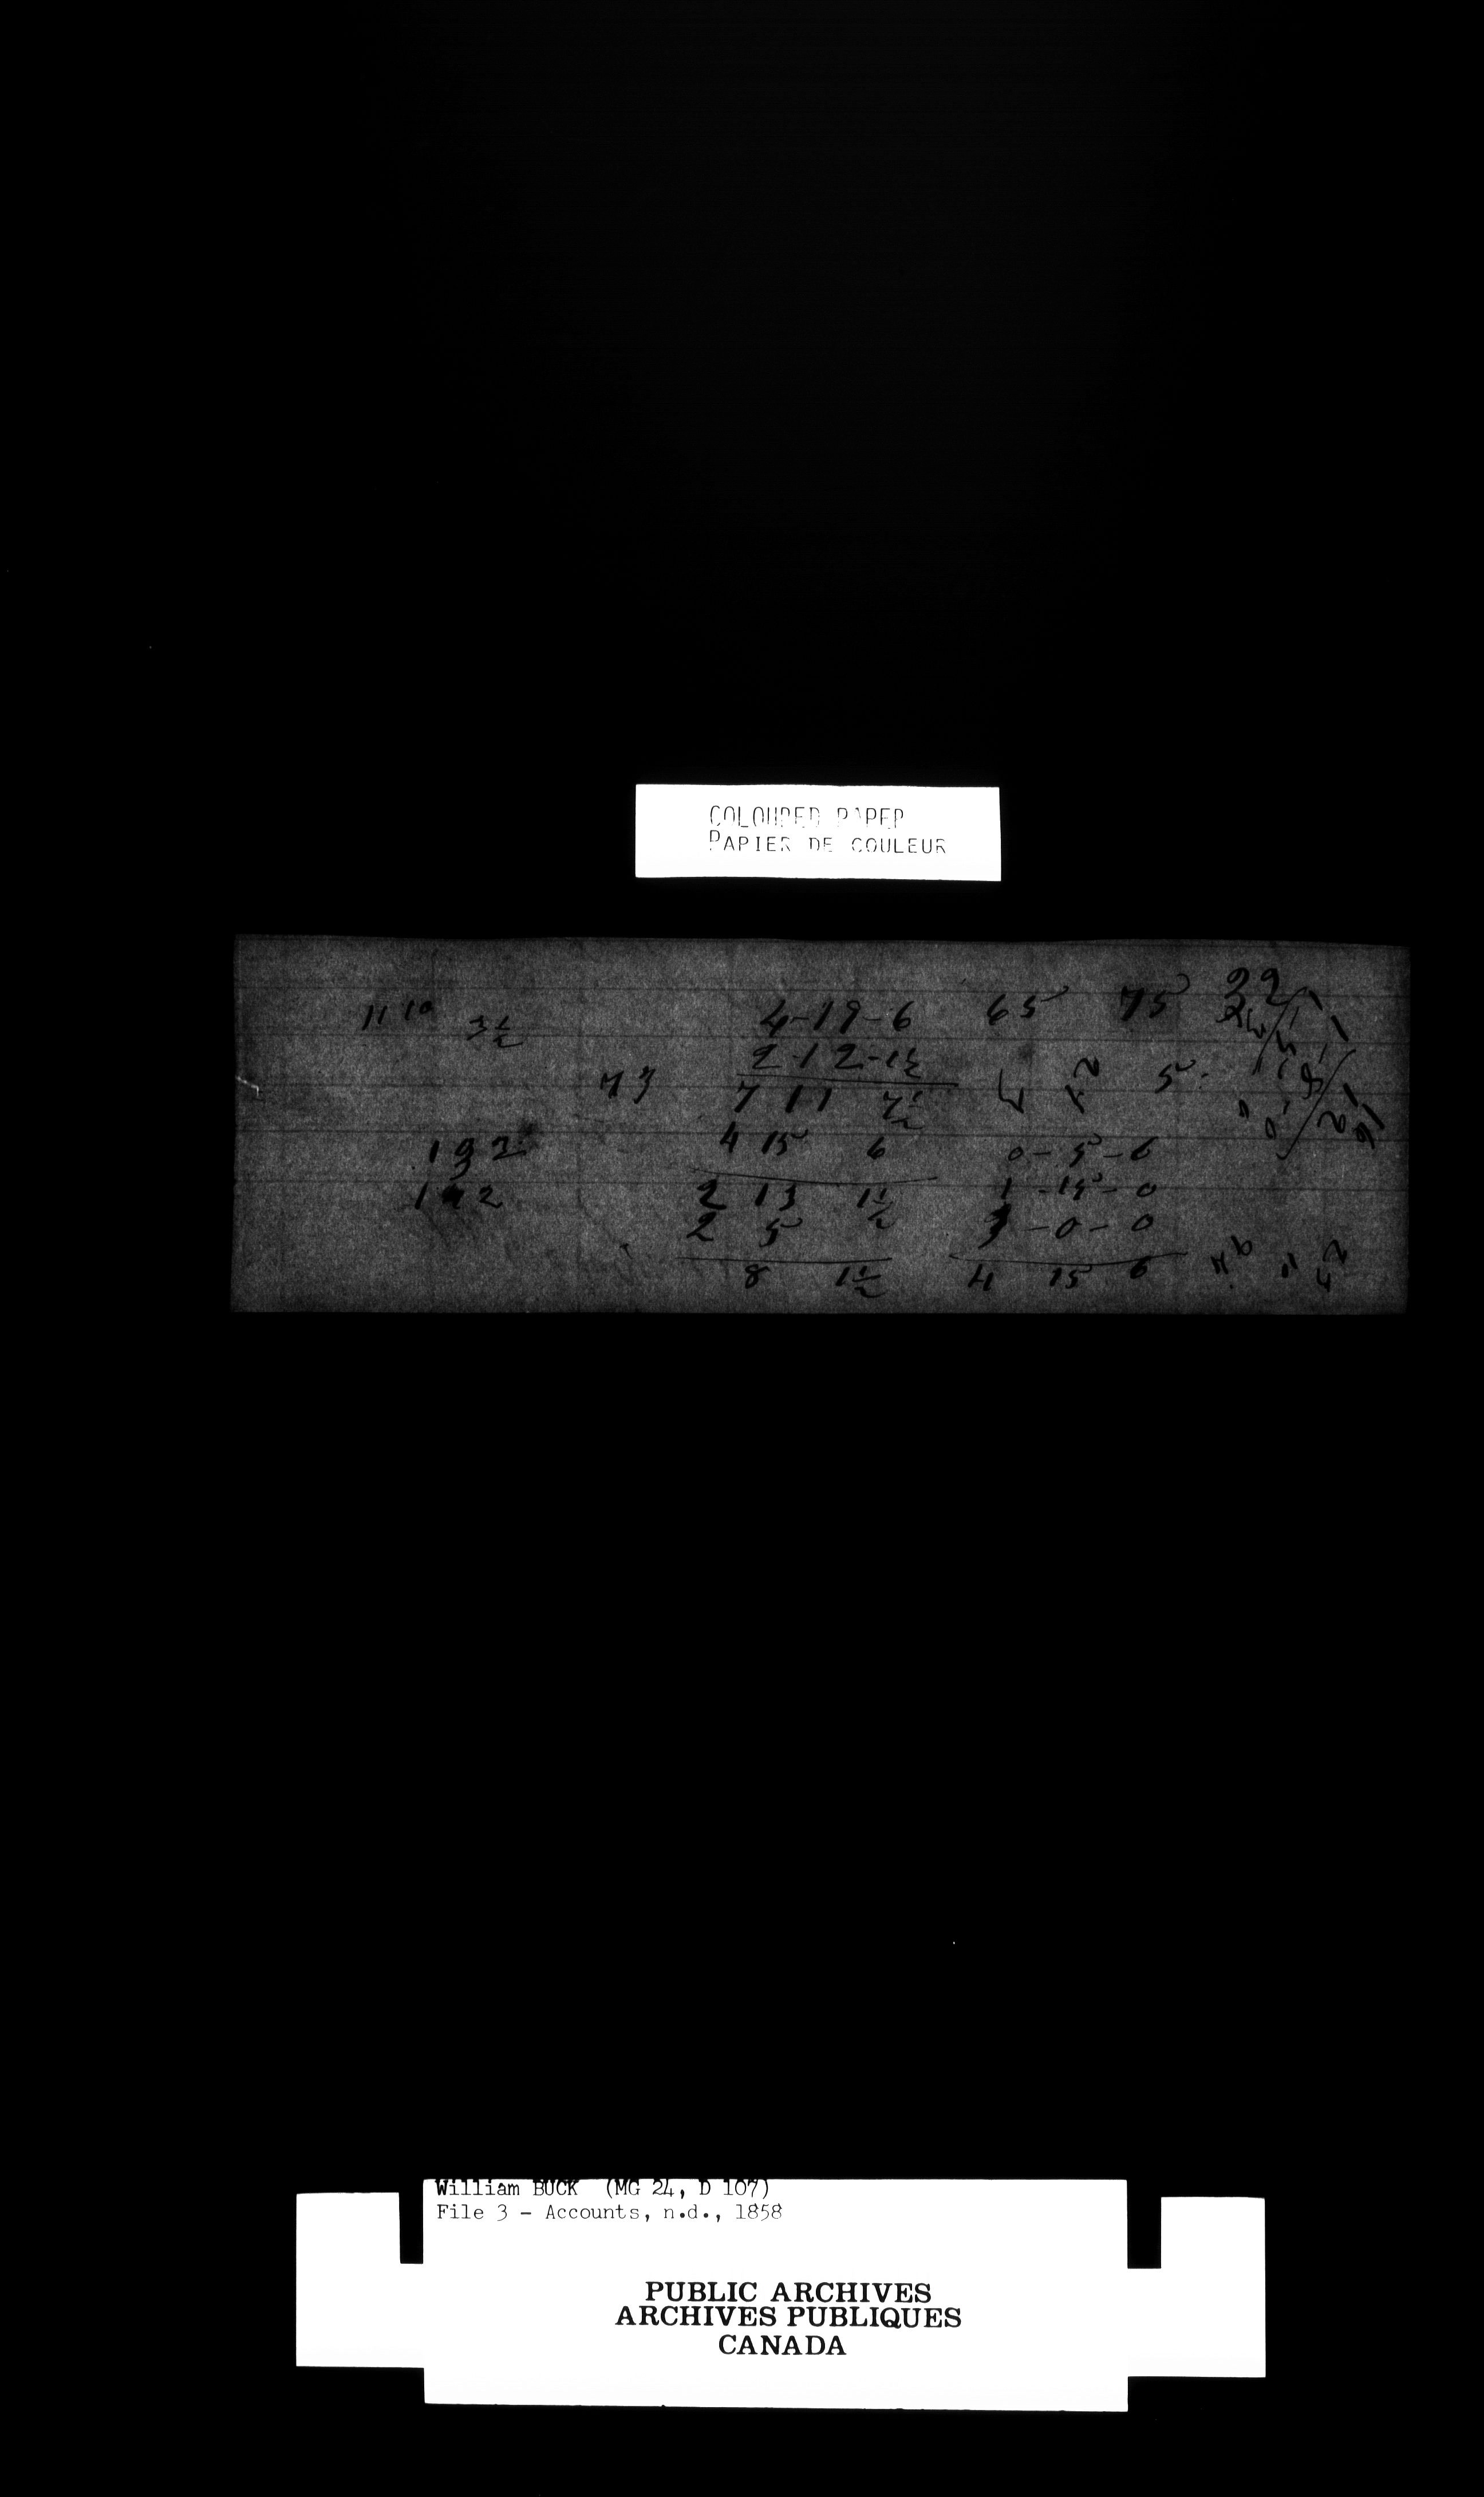 COLOURED PAPER
PAPIER DE COULEUR
11 10 3½ 4-19-6 65 75
2-12-1½
73 7 11 7½ 5
192 4 15 6 0-5-6
142 2 13 1½ 1-15-0
2 5 3-0-0
8 1½ 4 15 6
William BUCK (MG 24, D 107)
File 3 - Accounts, n.d., 1858
PUBLIC ARCHIVES
ARCHIVES PUBLIQUES
CANADA